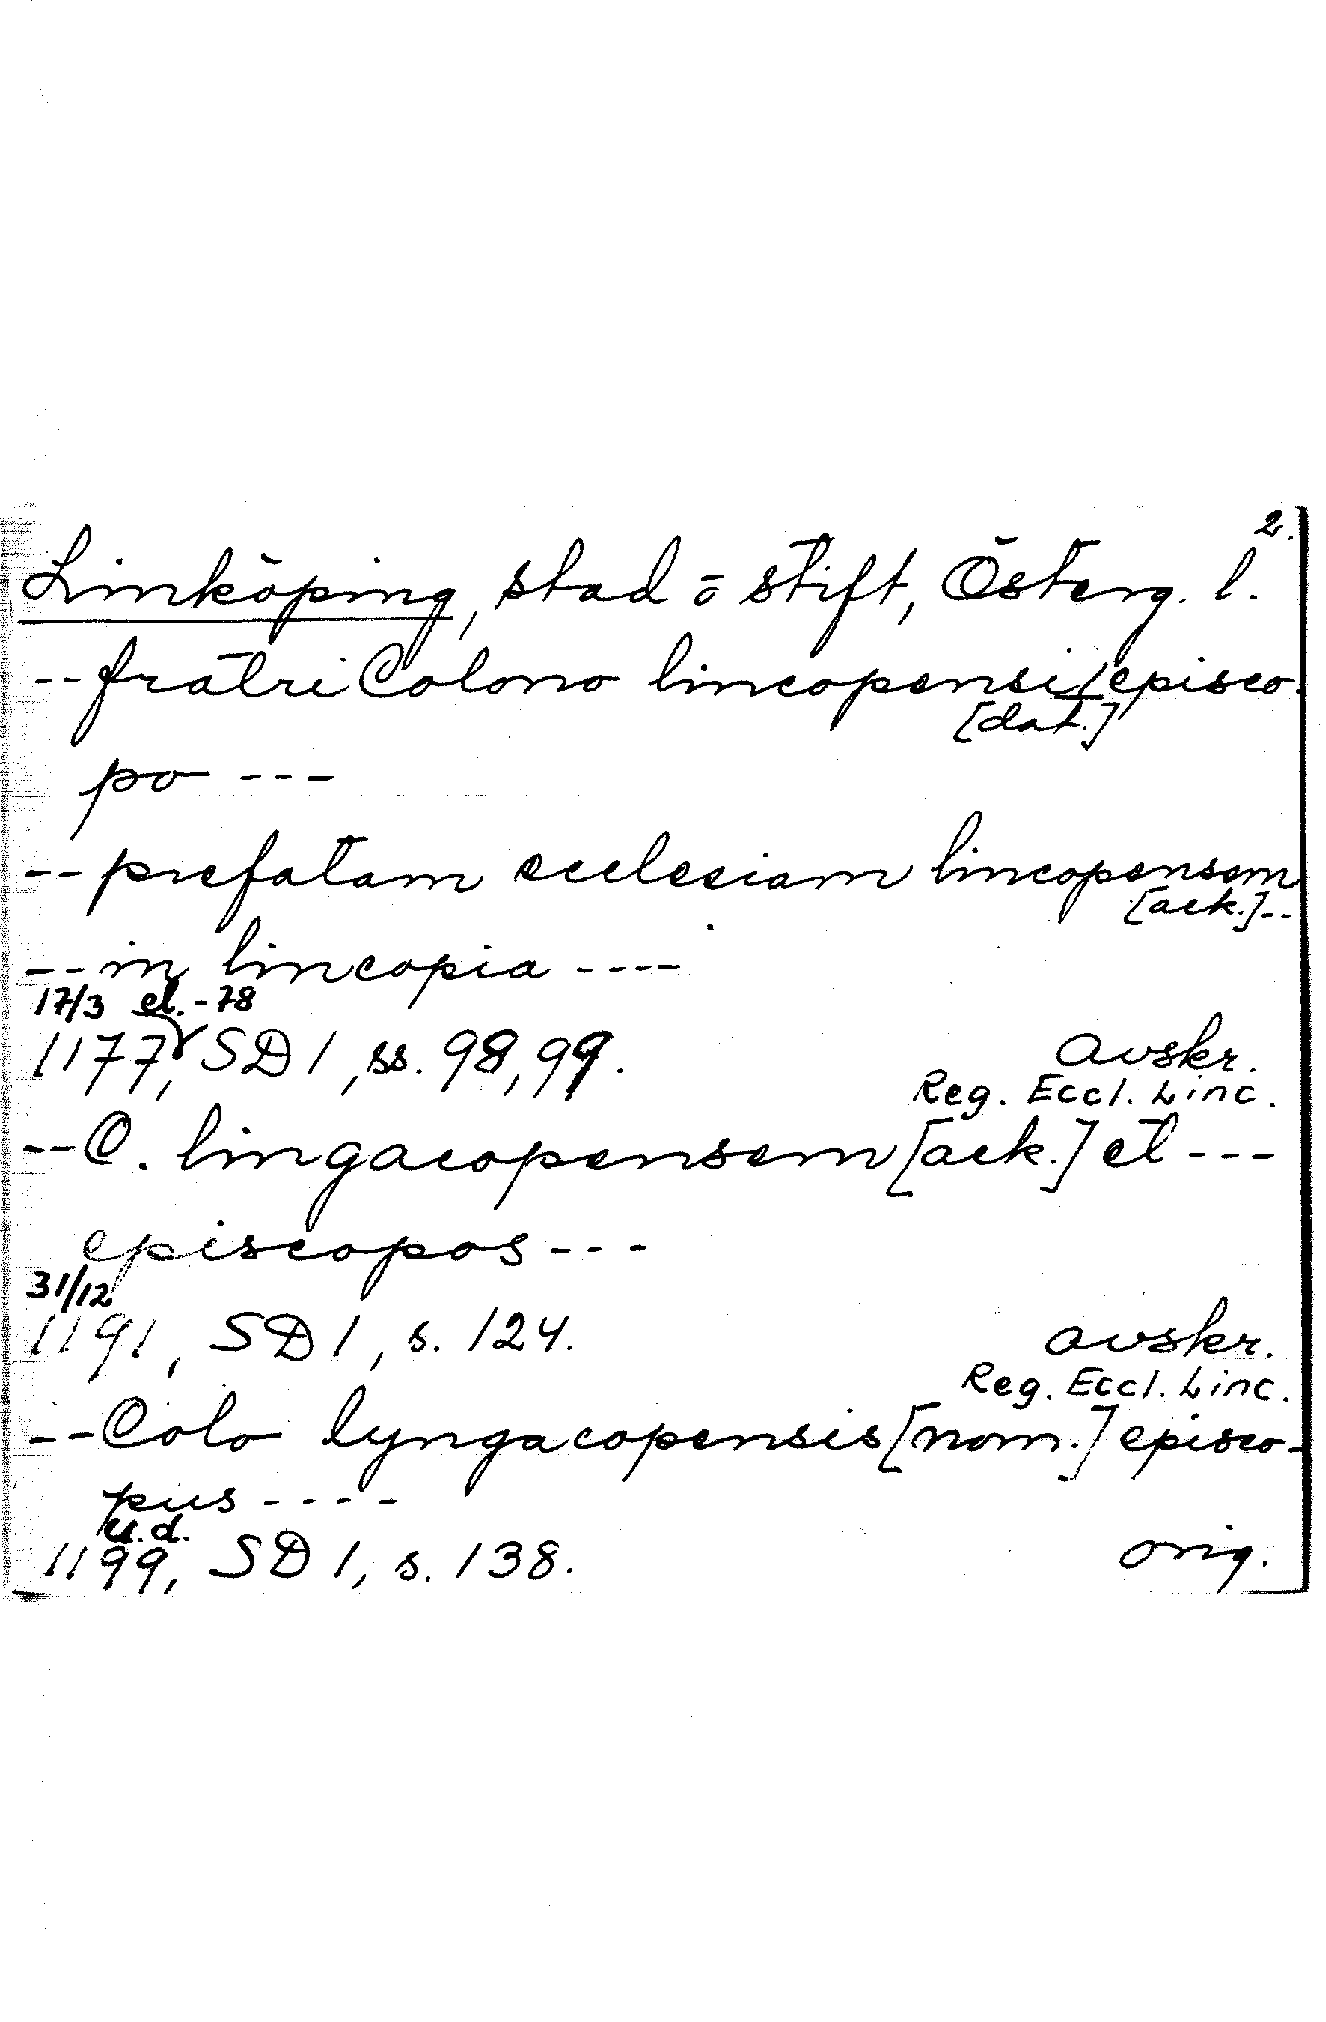 2.
Linköping, stad o stift, Österg. l.
-- fratri Colono lincopensi episco-
[dat.]
po ---
-- prefatam ecclesiam lincopensem
[ack.]--
-- in lincopia ----
17/3 el. -78
1177, SD 1, ss. 98, 99. avskr.
Reg. Eccl. Linc.
-- C. lingacopensem [ack.] et ---
episcopos ---
31/12
1191, SD 1, s. 124. avskr.
Reg. Eccl. Linc.
-- Colo lyngacopensis [nom.] episco-
pus ----
u.d.
1199, SD 1, s. 138. orig.